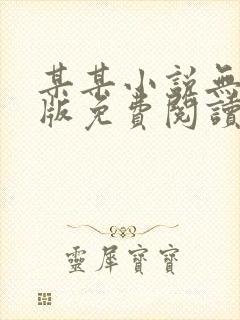 某某小說無
版免費閱讀
靈犀寶寶